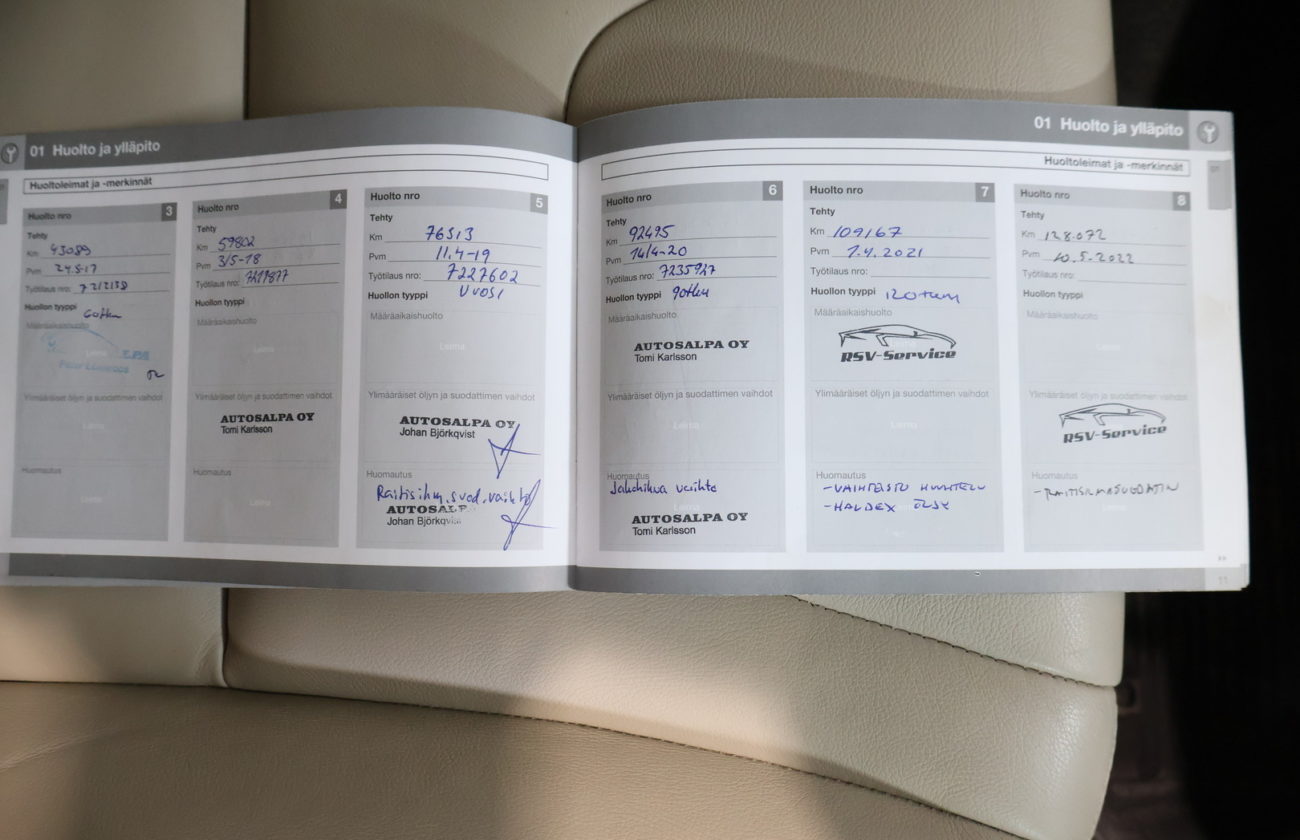 01 Huolto ja ylläpito
Huoltoleimat ja -merkinnät
Huolto nro 3
Tehty
Km 43089
Pvm 24.5-17
Työtilaus nro:
Huollon tyyppi 60tkm
Määräaikaishuolto
Leima
Ylimääräiset öljyn ja suodattimen vaihdot
Leima
Huomautus
Leima
Huolto nro 4
Tehty
Km 59802
Pvm 3/5-18
Työtilaus nro: 7217877
Huollon tyyppi
Määräaikaishuolto
Leima
Ylimääräiset öljyn ja suodattimen vaihdot
AUTOSALPA OY
Tomi Karlsson
Huomautus
Huolto nro 5
Tehty
Km 76513
Pvm 11.4-19
Työtilaus nro: 7227602
Huollon tyyppi VUOSI
Määräaikaishuolto
Leima
Ylimääräiset öljyn ja suodattimen vaihdot
AUTOSALPA OY
Johan Björkqvist
Huomautus
Raitisilm.suod.vaihto
AUTOSALP
Johan Björkqvist
01 Huolto ja ylläpito
Huoltoleimat ja -merkinnät
Huolto nro 6
Tehty
Km 92495
Pvm 14/4-20
Työtilaus nro: 7235927
Huollon tyyppi 90tkm
Määräaikaishuolto
AUTOSALPA OY
Tomi Karlsson
Ylimääräiset öljyn ja suodattimen vaihdot
Leima
Huomautus
Jakohihna vaihto
AUTOSALPA OY
Tomi Karlsson
Huolto nro 7
Tehty
Km 109167
Pvm 7.4.2021
Työtilaus nro:
Huollon tyyppi 120tkm
Määräaikaishuolto
RSV-Service
Ylimääräiset öljyn ja suodattimen vaihdot
Leima
Huomautus
-VAIHTEISTO HUUHTELU
-HALDEX ÖLJY
Huolto nro 8
Tehty
Km 128.072
Pvm 10.5.2022
Työtilaus nro:
Huollon tyyppi
Määräaikaishuolto
Ylimääräiset öljyn ja suodattimen vaihdot
RSV-Service
Huomautus
-RAITISILMASUODATIN
11